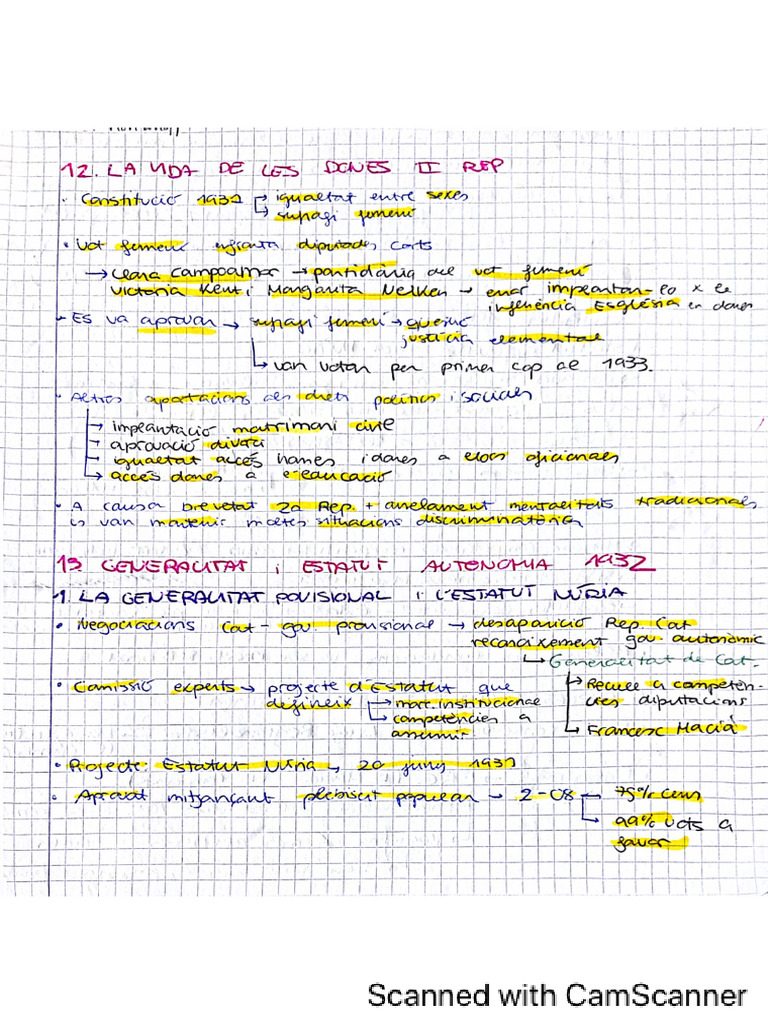 12. LA VIDA DE LES DONES II REP
· Constitució 1931 → igualtat entre sexes
→ sufragi femení
· Vot femení enfronta diputades Corts
→ Clara Campoamor → partidària del vot femení
Victoria Kent i Margarita Nelken → error implantar-lo x la
influència Església en dones
- Es va aprovar → sufragi femení → qüestió
justícia elemental
↳ van votar per primer cop el 1933.
· Altres aportacions dels drets polítics i socials
→ implantació matrimoni civil
→ aprovació divorci
→ igualtat accés homes i dones a càrrecs oficials
→ accés dones a l'educació
· A causa brevetat 2a Rep. + anelament mentalitats tradicionals
es van mantenir moltes situacions discriminatòries
13. GENERALITAT i ESTATUT AUTONOMIA 1932
1. LA GENERALITAT POVISIONAL I L'ESTATUT NÚRIA
· Negociacions Cat - gov. provisional → desaparició Rep. Cat
reconeixement gov. autonòmic
↳ Generalitat de Cat.
· Comissió experts → projecte d'Estatut que
defineix → marc institucional
→ competències a
assumir
→ Recull a competèn-
cies diputacions
↳ Francesc Macià
· Projecte: Estatut Núria → 20 juny 1931
· Aprovat mitjançant plebiscit popular → 2-08 → 75% cens
↳ 99% vots a
favor
Scanned with CamScanner